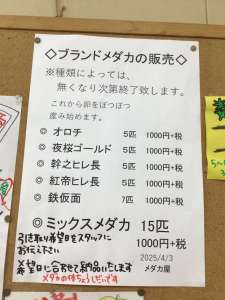 ◇ブランドメダカの販売◇
※種類によっては、
無くなり次第終了致します。
これから卵をぽつぽつ
産み始めます。
◎ オロチ 5匹 1000円+税
◎ 夜桜ゴールド 5匹 1000円+税
◎ 幹之ヒレ長 5匹 1000円+税
◎ 紅帝ヒレ長 5匹 1000円+税
◎ 鉄仮面 7匹 1000円+税
◎ミックスメダカ 15匹
1000円+税
引き取り希望日をスタッフに
お伝え下さい
2025/4/3
※希望日に合わせて納品いたします
メダカ屋
メダカの体ちょうしだいです
5〜